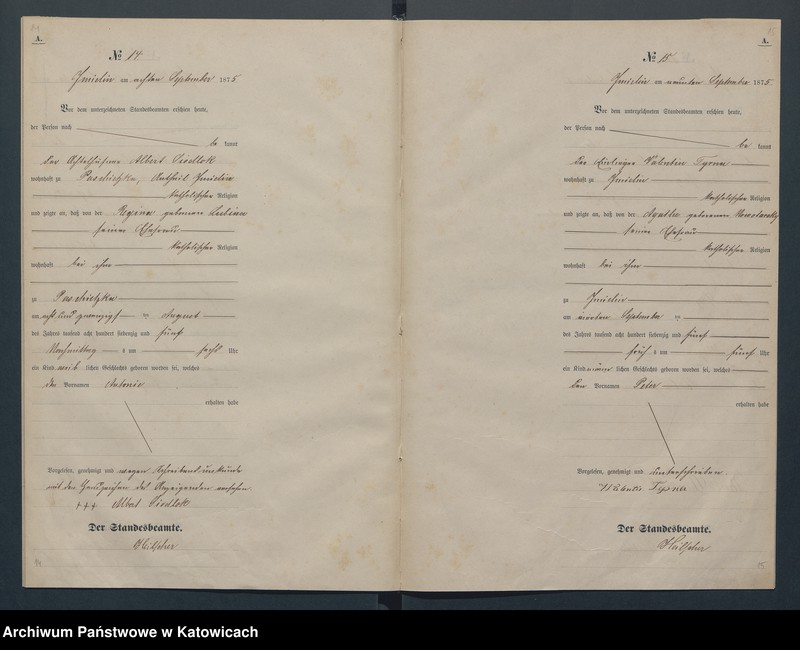 A.
№ 14
Imielin am achten September 1875
Vor dem unterzeichneten Standesbeamten erschien heute,
der Person nach
be kannt
der Albert Siedlok
wohnhaft zu Paschietzka, Antheil Imielin
katholischer Religion
und zeigte an, daß von der Regina geborenen
seiner Ehefrau
katholischer Religion
wohnhaft bei ihm
zu Paschietzka
am acht und zwanzigsten August
des Jahres tausend acht hundert siebenzig und fünf
Nachmittag s um sechs Uhr
ein Kind weib lichen Geschlechts geboren worden sei, welches
den Vornamen Antonie
erhalten habe
Vorgelesen, genehmigt und wegen Schreibensunkunde
mit den Handzeichen des Anzeigenden versehen
+++ Albert Siedlok
Der Standesbeamte.
Hilscher
A.
№ 15
Imielin am neunten September 1875.
Vor dem unterzeichneten Standesbeamten erschien heute,
der Person nach
be kannt
der Einlieger Valentin Tyrna
wohnhaft zu Imielin
katholischer Religion
und zeigte an, daß von der Agathe geborenen
seiner Ehefrau
katholischer Religion
wohnhaft bei ihm
zu Imielin
am vierten September
des Jahres tausend acht hundert siebenzig und fünf
früh s um fünf Uhr
ein Kind männ lichen Geschlechts geboren worden sei, welches
den Vornamen Peter
erhalten habe
Vorgelesen, genehmigt und unterschrieben.
Walentin Tyrna
Der Standesbeamte.
Hilscher
Archiwum Państwowe w Katowicach